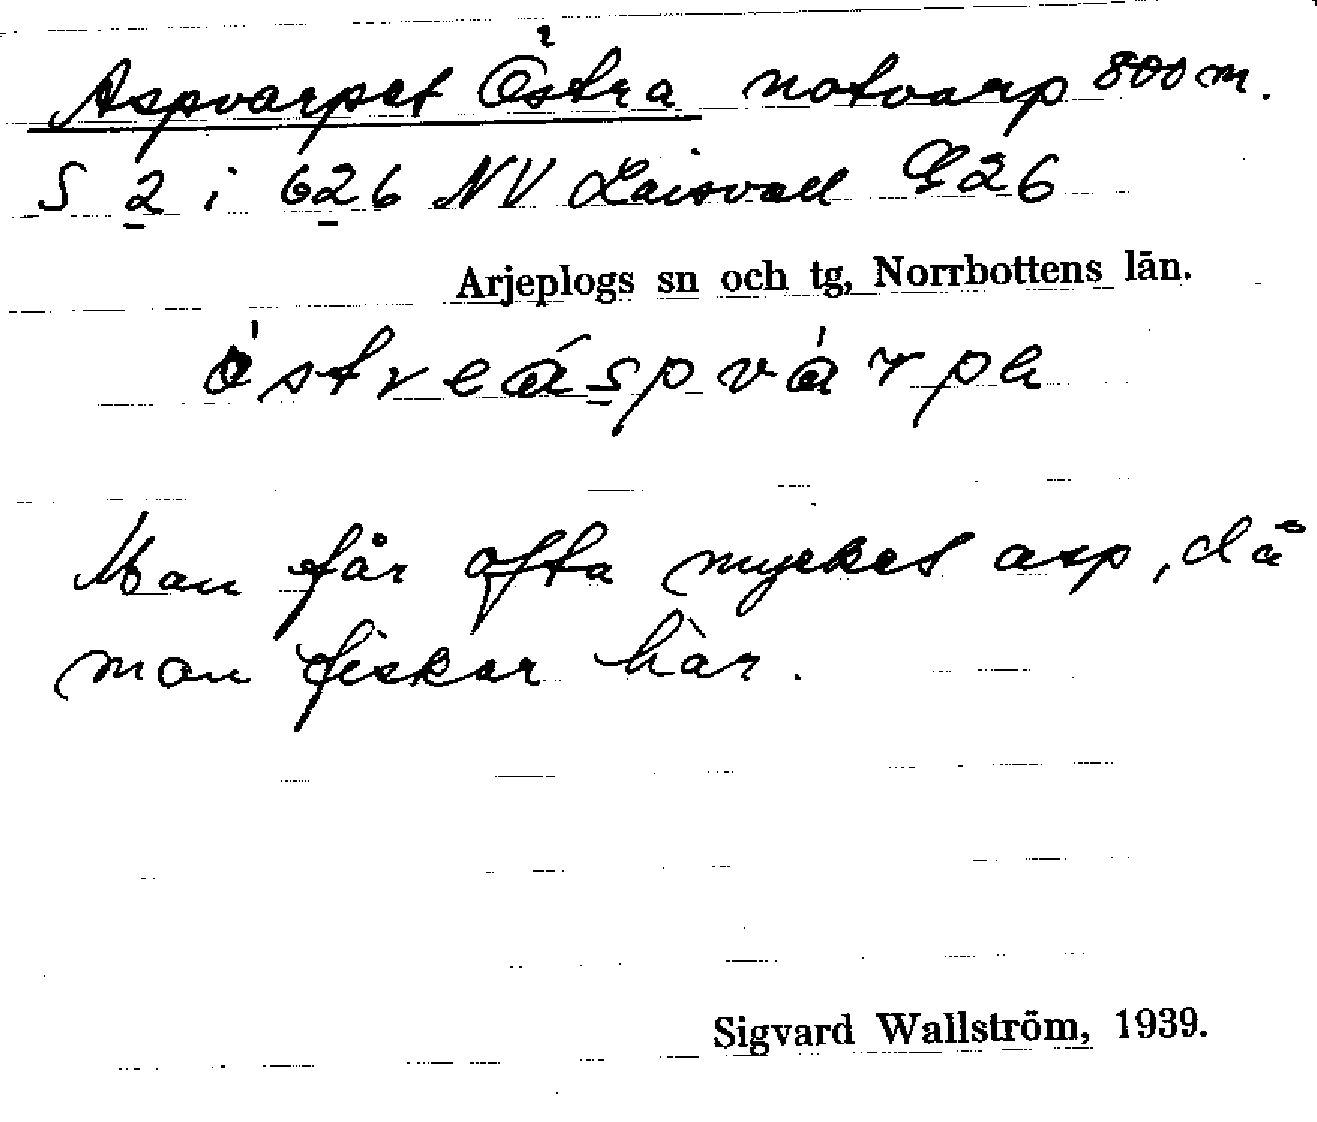 Aspvarpet Östra notvarp 800 m.
S 2 i 626 NV Laisvall G26
Arjeplogs sn och tg, Norrbottens län.
östreáspvárpe
Man får ofta mycket asp, då
man fiskar här.
Sigvard Wallström, 1939.